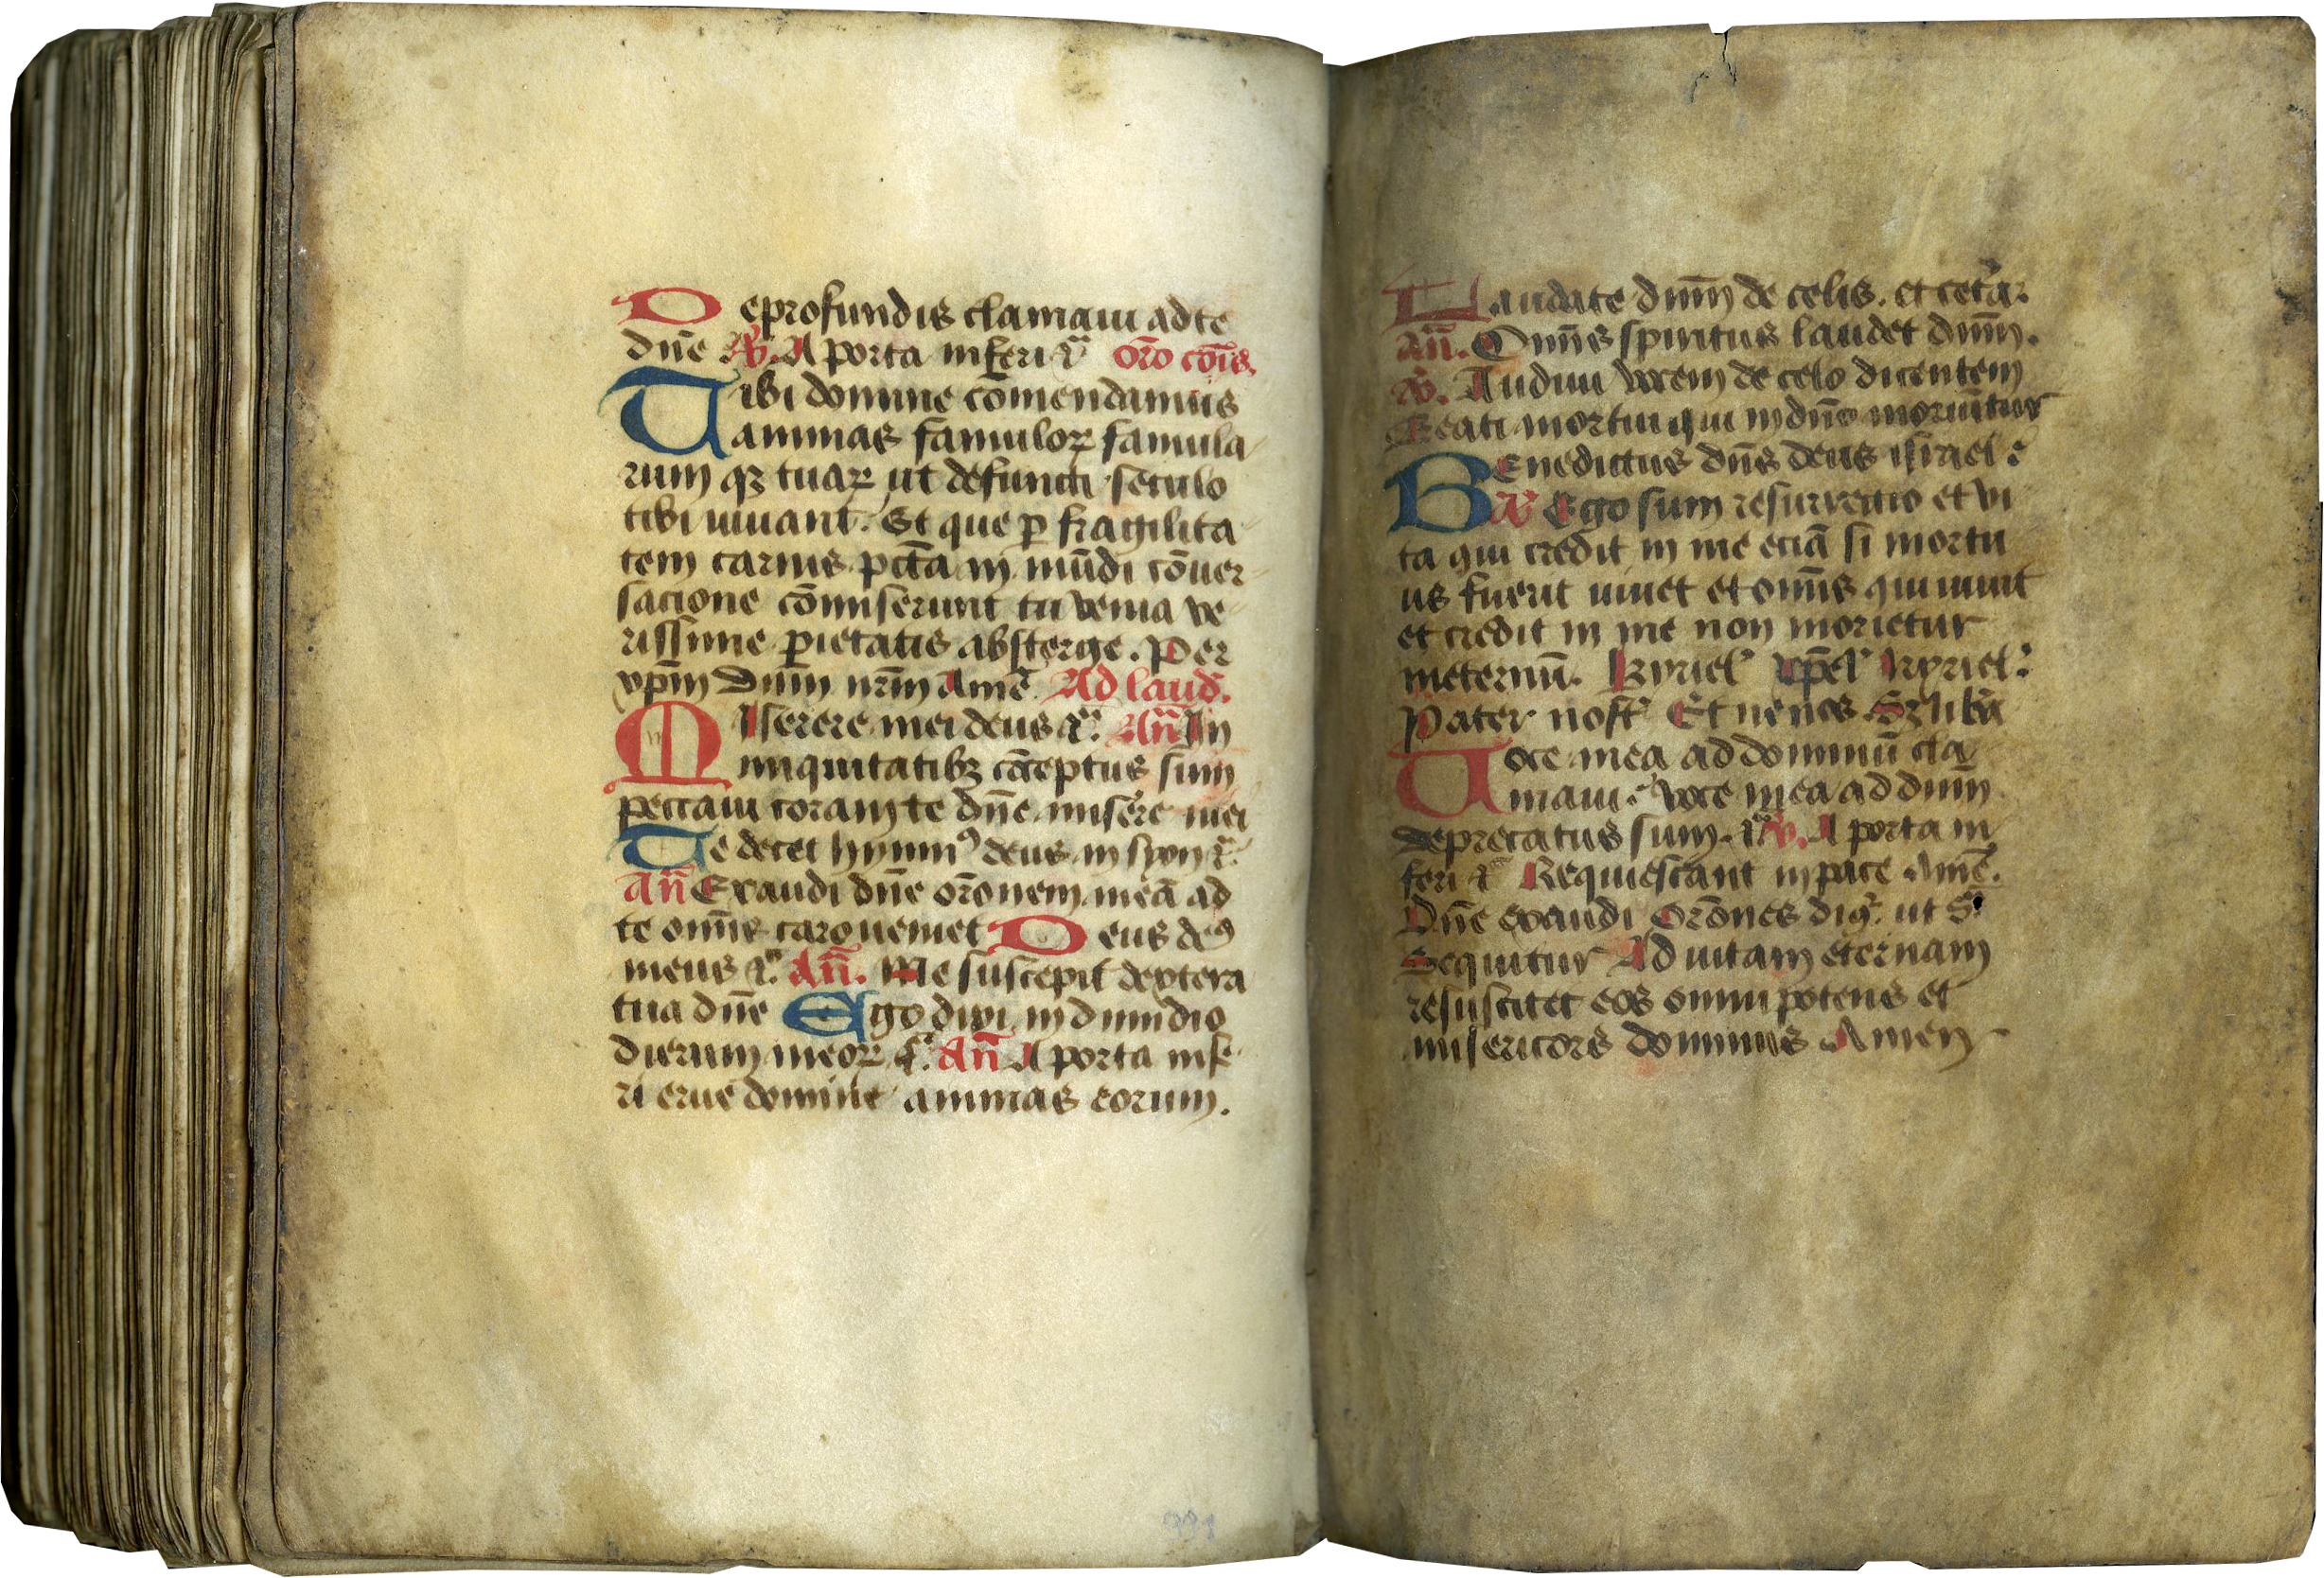 De profundis clamaui ad te
dn̄e ℣. A porta inferi ⁊c̄ Oro cōis.
Tibi domine cōmendamus
animas famuloꝝ famula
rum qꝫ tuaꝝ ut defuncti seculo
tibi uiuant. Et que ꝑ fragilita
tem carnis pctā in mūdi cōuer
sacione cōmiserunt tu venia ve
rissime pietatis absterge. Per
xp̄m dnm̄ nr̄m Amē Ad laud.
Miserere mei deus ⁊c̄. Añ In
iniquitatibꝫ cōceptus sum
peccaui coram te dn̄e miserere mei
Te decet hymnꝰ deus in syon ⁊c̄.
Añ Exaudi dn̄e orōnem meā ad
te omīs caro ueniet Deus deꝰ
meus ⁊c̄. Añ. Me suscepit dextera
tua dn̄e Ego dixi in dimidio
dierum meoꝝ ⁊c̄. Añ A porta infe
ri erue domine animas eorum.
Laudate dnm̄ de celis. et cetera.
Añ. Omn̄s spiritus laudet dnm̄.
℣. Audiui vocem de celo dicentem
Beati mortui qui in dn̄o moriūtur
Benedictus dn̄s deus israel.
Añ Ego sum resurrectio et vi
ta qui credit in me eciā si mortu
us fuerit uiuet et omīs qui uiuit
et credit in me non morietur
ineternū. Kyriel xp̄el kyriel.
Pater nost̄ Et ne nos Sꝫ libā
Uoce mea ad dominū cla
maui voce mea ad dnm̄
deprecatus sum. ⁊c̄ ℣. A porta in
feri ⁊c̄ Requiescant in pace Amē.
Dn̄e exaudi Orōnes ut S.
Sequitur Ad uitam eternam
resuscitet eos omnipotens et
misericors dominus Amen
331